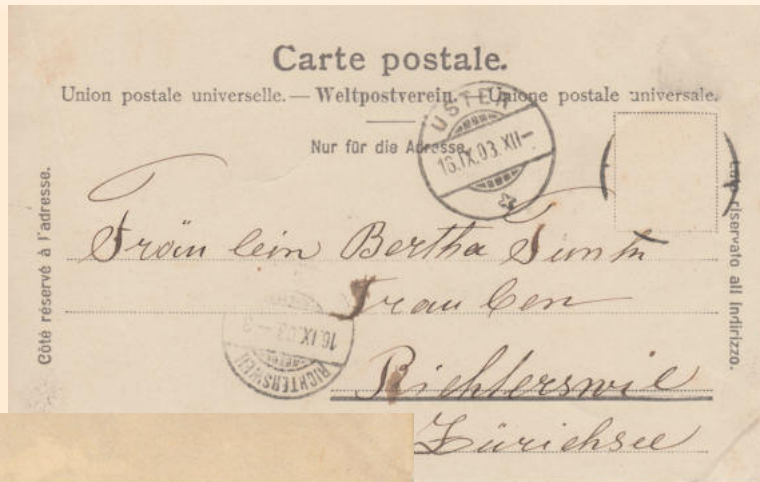 Carte postale.
Union postale universelle. — Weltpostverein. — Unione postale universale.
Nur für die Adresse.
USTER
16.IX.03.XII—
Côté réservé à l'adresse.
Lato riservato all indirizzo.
Fräulein Bertha
Richterswil
Zürichsee
16.IX.03—3
RICHTERSWEIL